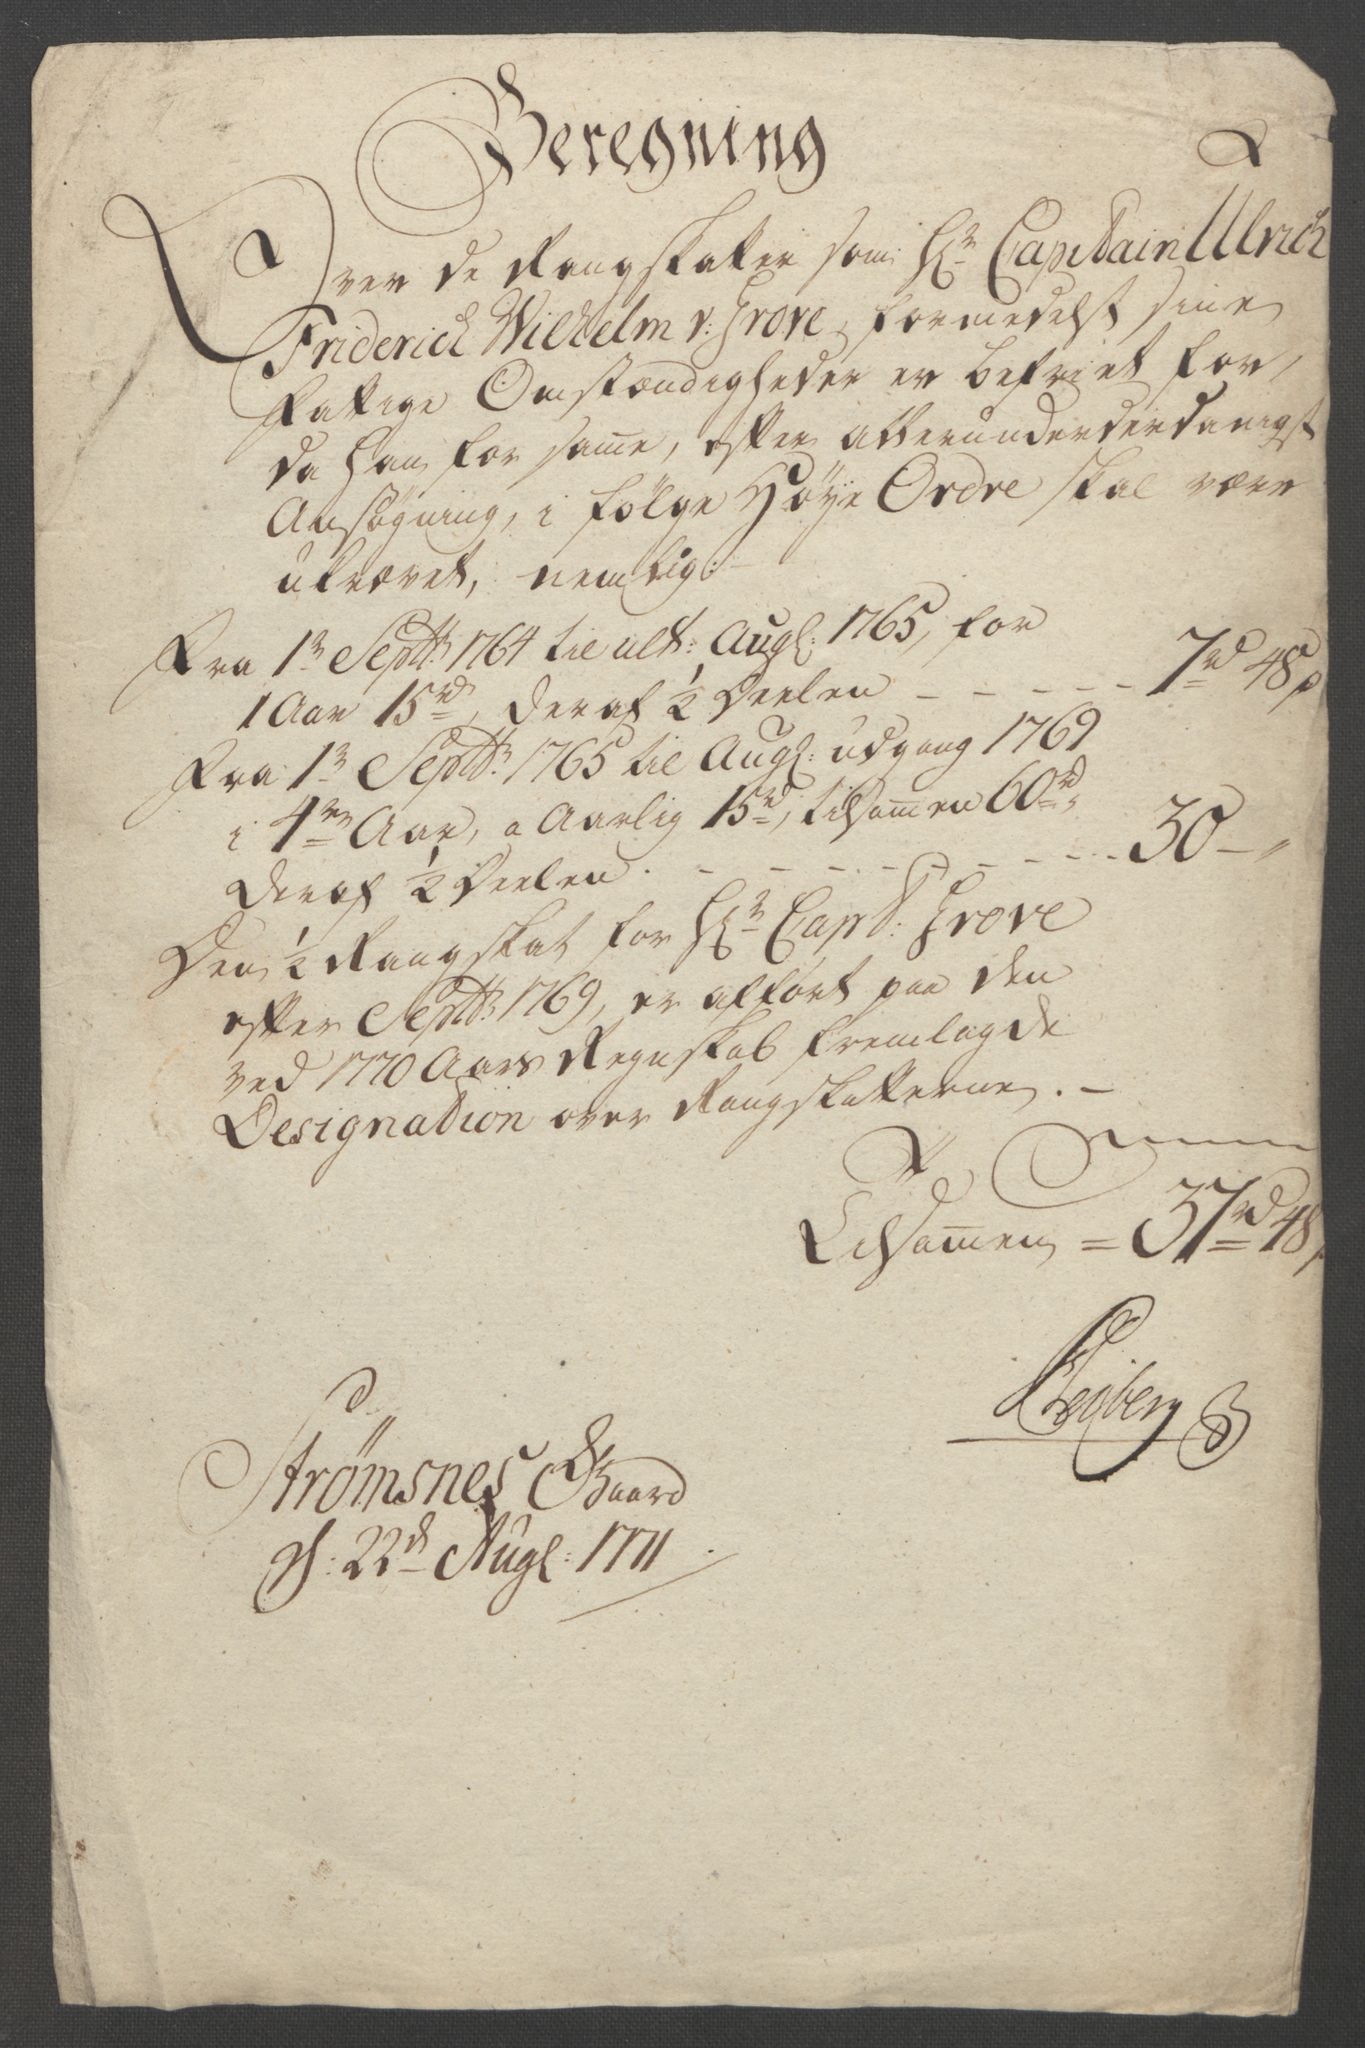 Beregning
Over de Rangskatter som Hr. Capitain Ulrich
Friderich Wilhelm v: Grove, formedelst sine
fattige Omstændigheder er befriet for,
da han for same, efter allerunderderdanigst
Ansøgning, i følge Høye Ordre skal være
ukrævet, nemlig:
Fra 1n Septbr. 1764 til ult: Aug: 1765, for
1 Aar 15rd, deraf ½ Deelen - - - - - 7rd 48s
Fra 1n Septbr. 1765 til Aug: udgang 1769
i 4re Aar, a Aarlig 15rd, tilsamen 60rd,
deraf ½ Deelen. - - - - - - - - 30 — "
Den ½ Rangskat for Hr. Capt: Grove
efter Septbr. 1769, er afført paa den
ved 1770 Aars Regnskab fremlagde
Designation over Rangskatterne. -
Tilsamen = 37rd 48s
Strømsnes Gaard
d: 22d Aug: 1771.